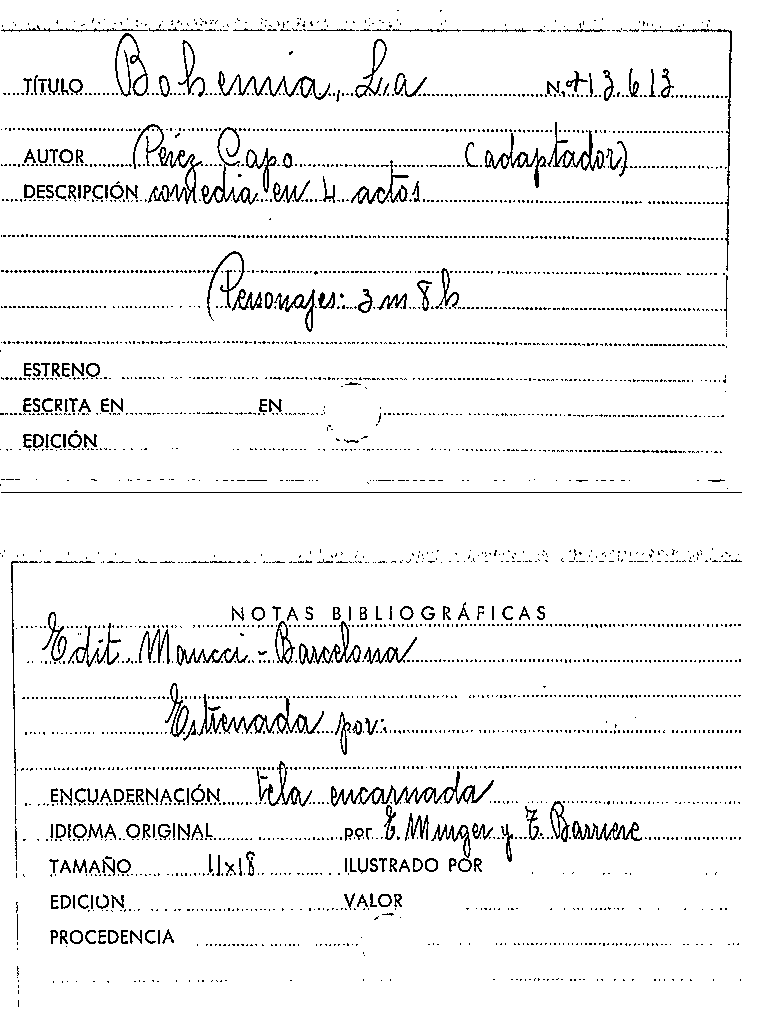 TÍTULO Bohemia, La N.º 13.613
AUTOR Pérez Capo (adaptador)
DESCRIPCIÓN comedia en 4 actos
Personajes: 3 m 8 h
ESTRENO
ESCRITA EN EN
EDICIÓN
NOTAS BIBLIOGRÁFICAS
Edit. Maucci - Barcelona
Estrenada por:
ENCUADERNACIÓN tela encarnada
IDIOMA ORIGINAL por E. Murger y T. Barriere
TAMAÑO 11x18 ILUSTRADO POR
EDICION VALOR
PROCEDENCIA